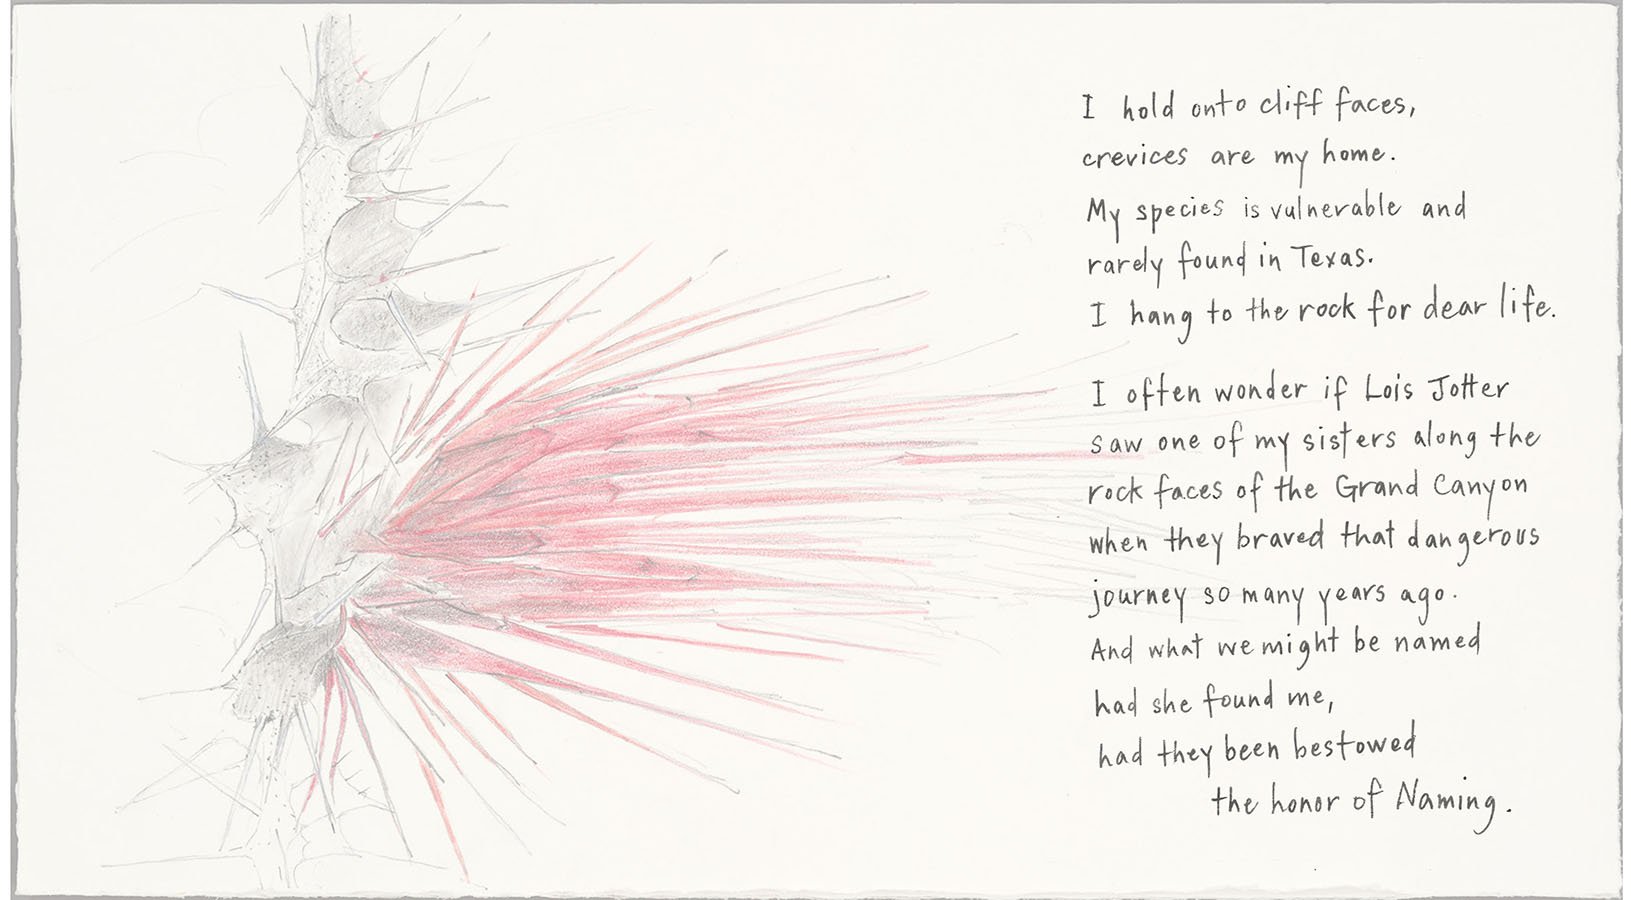 I hold onto cliff faces,
crevices are my home.
My species is vulnerable and
rarely found in Texas.
I hang to the rock for dear life.
I often wonder if Lois Jotter
saw one of my sisters along the
rock faces of the Grand Canyon
when they braved that dangerous
journey so many years ago.
And what we might be named
had she found me,
had they been bestowed
the honor of Naming.